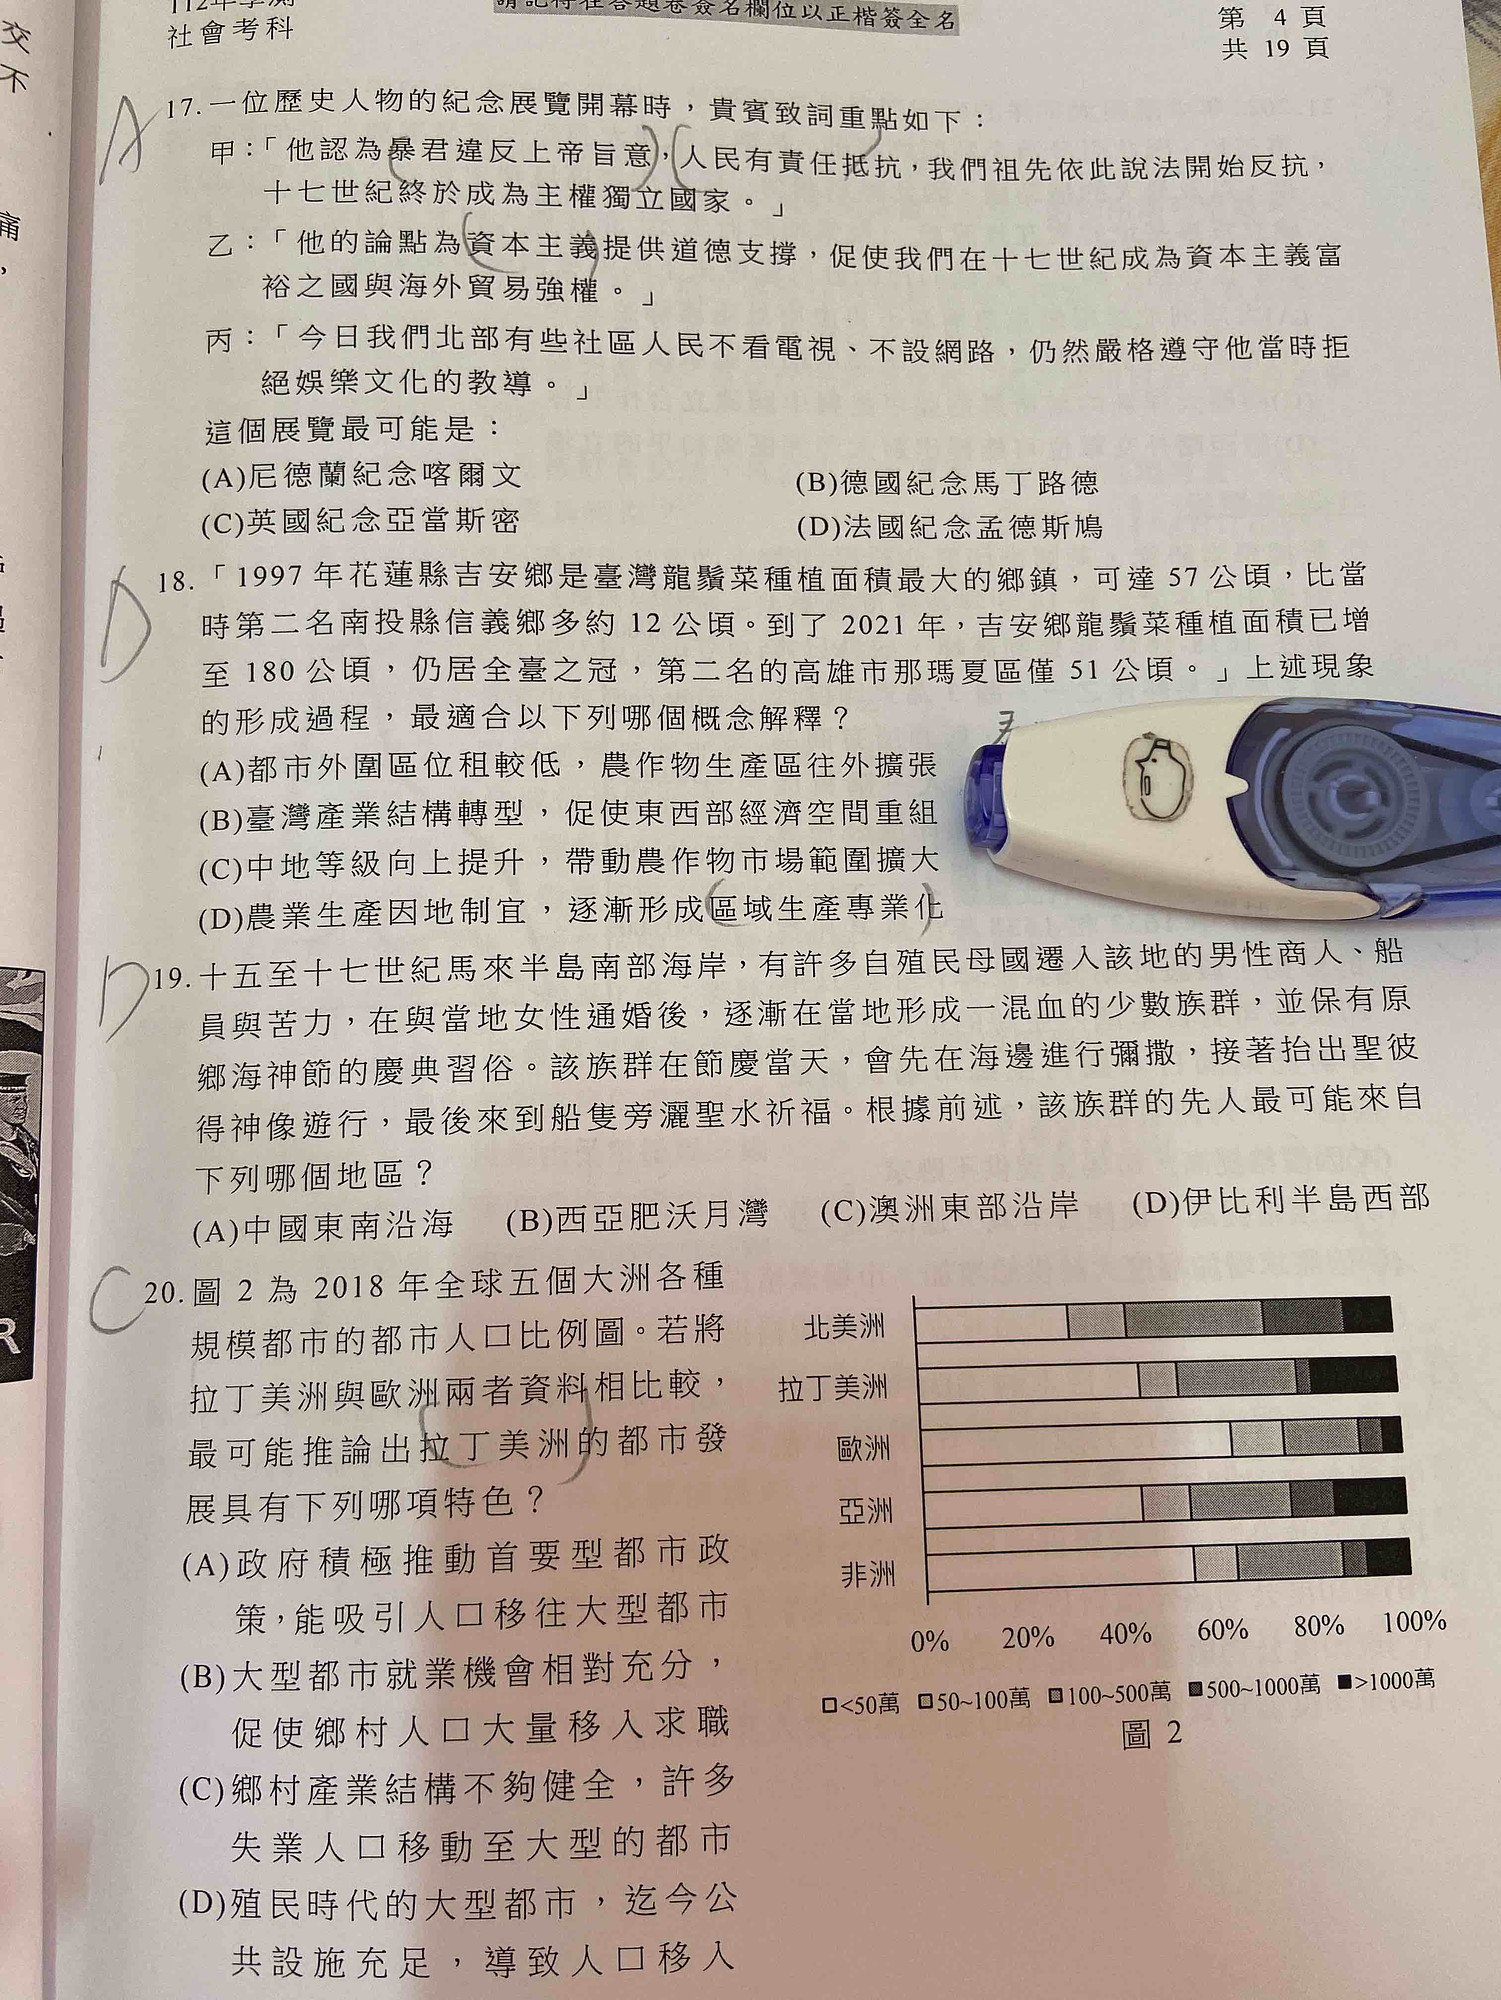 112年學測
社會考科
請記得在答題卷簽名欄位以正楷簽全名
第 4 頁
共 19 頁
交
不
痛
A
17.一位歷史人物的紀念展覽開幕時，貴賓致詞重點如下：
甲：「他認為暴君違反上帝旨意，人民有責任抵抗，我們祖先依此說法開始反抗，
十七世紀終於成為主權獨立國家。」
乙：「他的論點為資本主義提供道德支撐，促使我們在十七世紀成為資本主義富
裕之國與海外貿易強權。」
丙：「今日我們北部有些社區人民不看電視、不設網路，仍然嚴格遵守他當時拒
絕娛樂文化的教導。」
這個展覽最可能是：
(A)尼德蘭紀念喀爾文 (B)德國紀念馬丁路德
(C)英國紀念亞當斯密 (D)法國紀念孟德斯鳩
D
18.「1997 年花蓮縣吉安鄉是臺灣龍鬚菜種植面積最大的鄉鎮，可達 57 公頃，比當
時第二名南投縣信義鄉多約 12 公頃。到了 2021 年，吉安鄉龍鬚菜種植面積已增
至 180 公頃，仍居全臺之冠，第二名的高雄市那瑪夏區僅 51 公頃。」上述現象
的形成過程，最適合以下列哪個概念解釋？
(A)都市外圍區位租較低，農作物生產區往外擴張
(B)臺灣產業結構轉型，促使東西部經濟空間重組
(C)中地等級向上提升，帶動農作物市場範圍擴大
(D)農業生產因地制宜，逐漸形成區域生產專業化
D
19.十五至十七世紀馬來半島南部海岸，有許多自殖民母國遷入該地的男性商人、船
員與苦力，在與當地女性通婚後，逐漸在當地形成一混血的少數族群，並保有原
鄉海神節的慶典習俗。該族群在節慶當天，會先在海邊進行彌撒，接著抬出聖彼
得神像遊行，最後來到船隻旁灑聖水祈福。根據前述，該族群的先人最可能來自
下列哪個地區？
(A)中國東南沿海 (B)西亞肥沃月灣 (C)澳洲東部沿岸 (D)伊比利半島西部
C
20.圖 2 為 2018 年全球五個大洲各種
規模都市的都市人口比例圖。若將
拉丁美洲與歐洲兩者資料相比較，
最可能推論出拉丁美洲的都市發
展具有下列哪項特色？
(A)政府積極推動首要型都市政
策，能吸引人口移往大型都市
(B)大型都市就業機會相對充分，
促使鄉村人口大量移入求職
(C)鄉村產業結構不夠健全，許多
失業人口移動至大型的都市
(D)殖民時代的大型都市，迄今公
共設施充足，導致人口移入
北美洲
拉丁美洲
歐洲
亞洲
非洲
0% 20% 40% 60% 80% 100%
<50萬 50~100萬 100~500萬 500~1000萬 >1000萬
圖 2
R